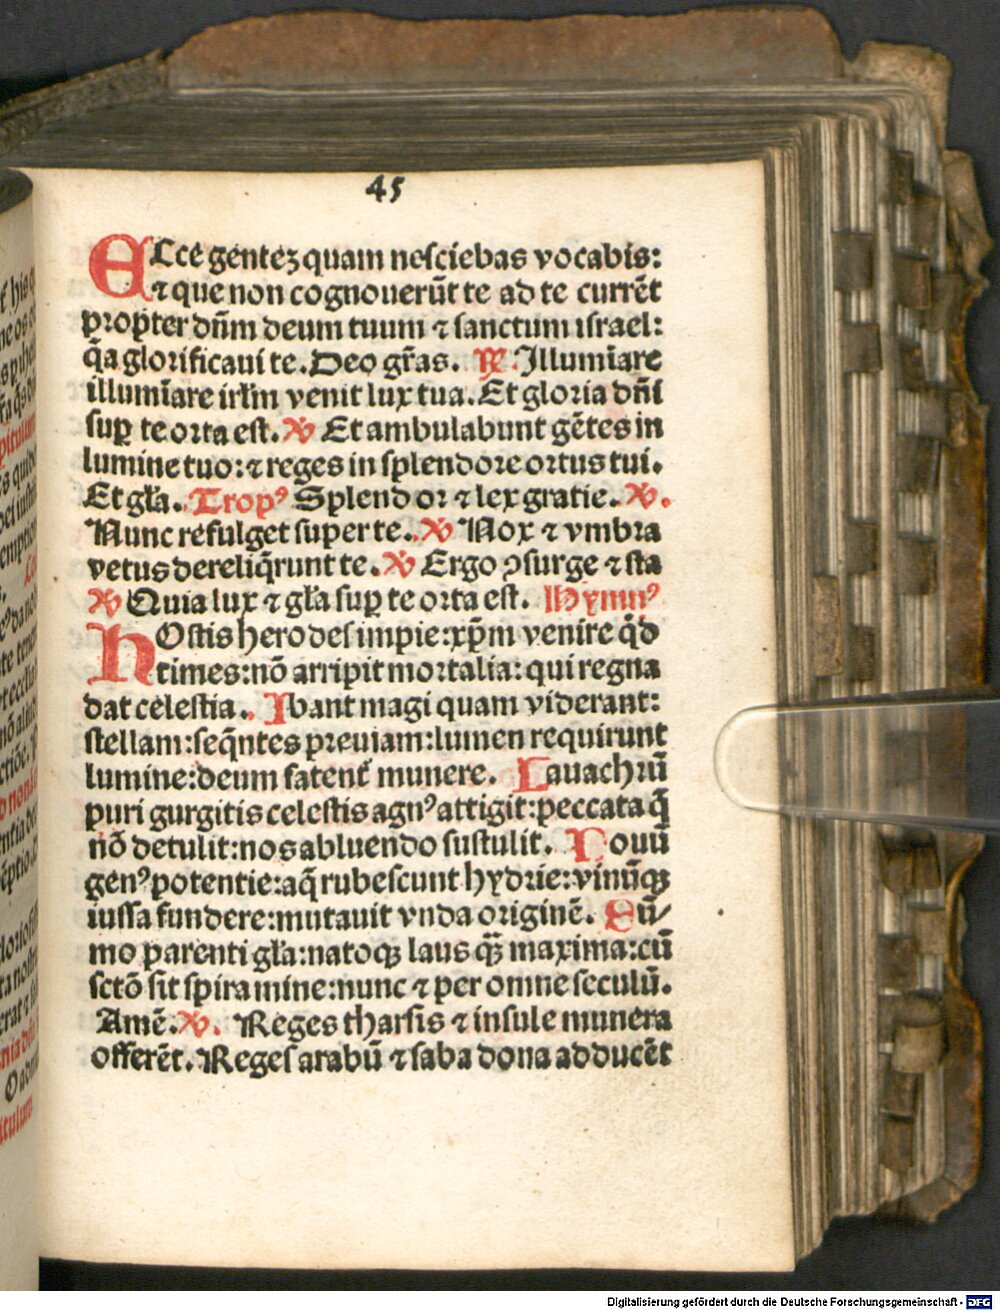 45
ECce gentez quam nesciebas vocabis:
⁊ que non cognouerūt te ad te currēt
propter dn̄m deum tuum ⁊ sanctum israel:
q̄a glorificaui te. Deo gr̄as. ℟. Illumīare
illumīare irl̄m venit lux tua. Et gloria dn̄i
suꝑ te orta est. ℣ Et ambulabunt gētes in
lumine tuo: ⁊ reges in splendore ortus tui.
Et gl̄a. Tropꝰ Splendor ⁊ lex gratie. ℣.
Nunc refulget super te. ℣ Nox ⁊ vmbra
vetus dereliq̄runt te. ℣ Ergo ↄsurge ⁊ sta
℣ Quia lux ⁊ gl̄a suꝑ te orta est. Hymnꝰ
HOstis herodes impie: xp̄m venire qd̄
times: nō arripit mortalia: qui regna
dat celestia. Ibant magi quam viderant:
stellam: seq̄ntes preuiam: lumen requirunt
lumine: deum fatent᷑ munere. Lauachrū
puri gurgitis celestis agnꝰ attigit: peccata q̄
nō detulit: nos abluendo sustulit. Nouū
genꝰ potentie: aq̄ rubescunt hydrie: vinūqꝫ
iussa fundere: mutauit vnda originē. Sū/
mo parenti gl̄a: natoqꝫ laus qꝫ̄ maxima: cū
sctō sit spiramine: nunc ⁊ per omne seculū.
Amē. ℣. Reges tharsis ⁊ insule munera
offerēt. Reges arabū ⁊ saba dona adducēt
Digitalisierung gefördert durch die Deutsche Forschungsgemeinschaft - DFG